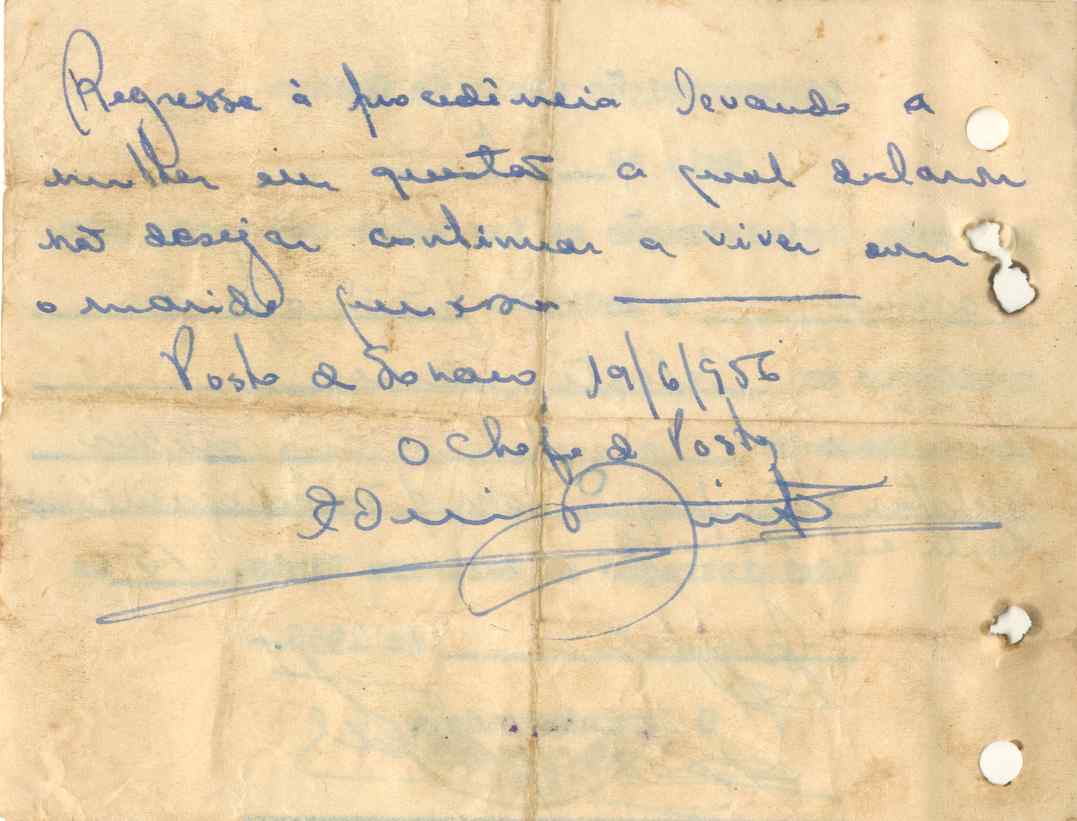 Regresse à procedência levando a
mulher em questão a qual declarou
não desejar continuar a viver com
o marido
Posto de 19/6/956
O Chefe de Posto